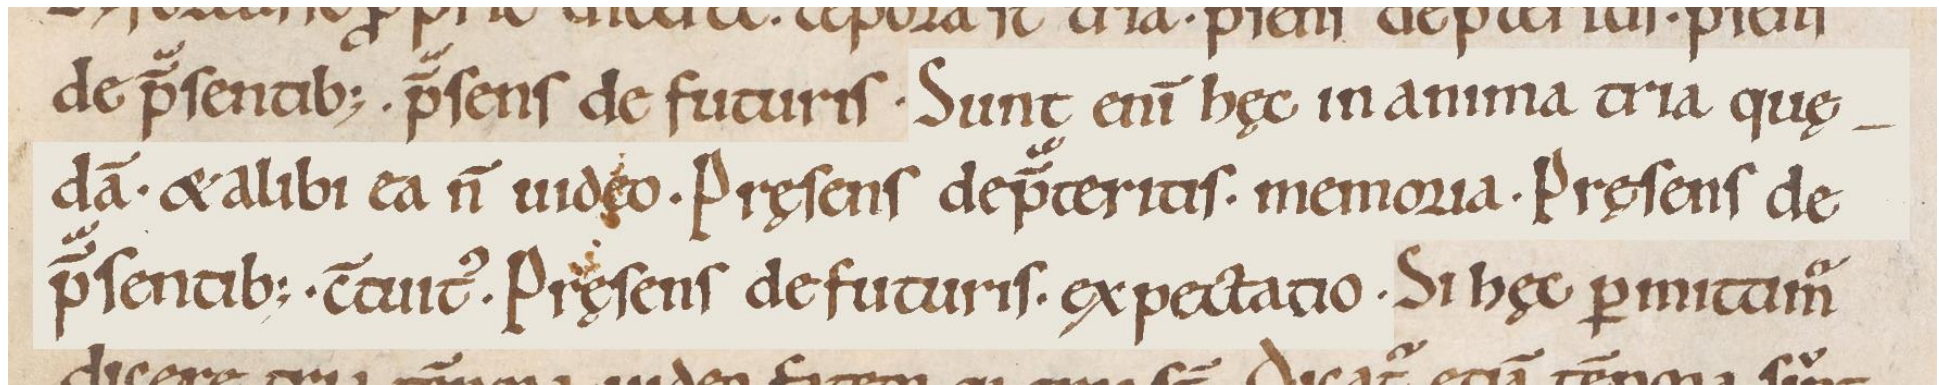 de p̄sentib; · p̄sens de futuris · Sunt enī hęc in anima tria quę_
dā · & alibi ea n̄ uideo · Pręsens de p̄teritis · memoria · Pręsens de
p̄sentib; · c̄tuit᾽ · Pręsens de futuris · expectatio · Si hęc ꝑmittimr̃